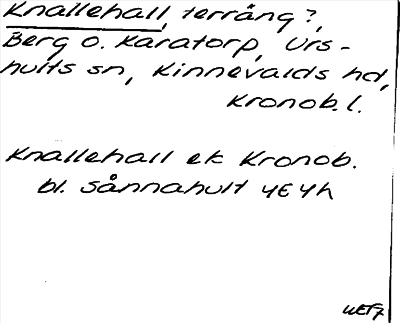 Knallehall, terräng?,
Berg o. Karatorp, Urs-
hults sn, Kinnevalds hd,
Kronob. l.
Knallehall ek Kronob.
bl. Sånnahult 4E4h